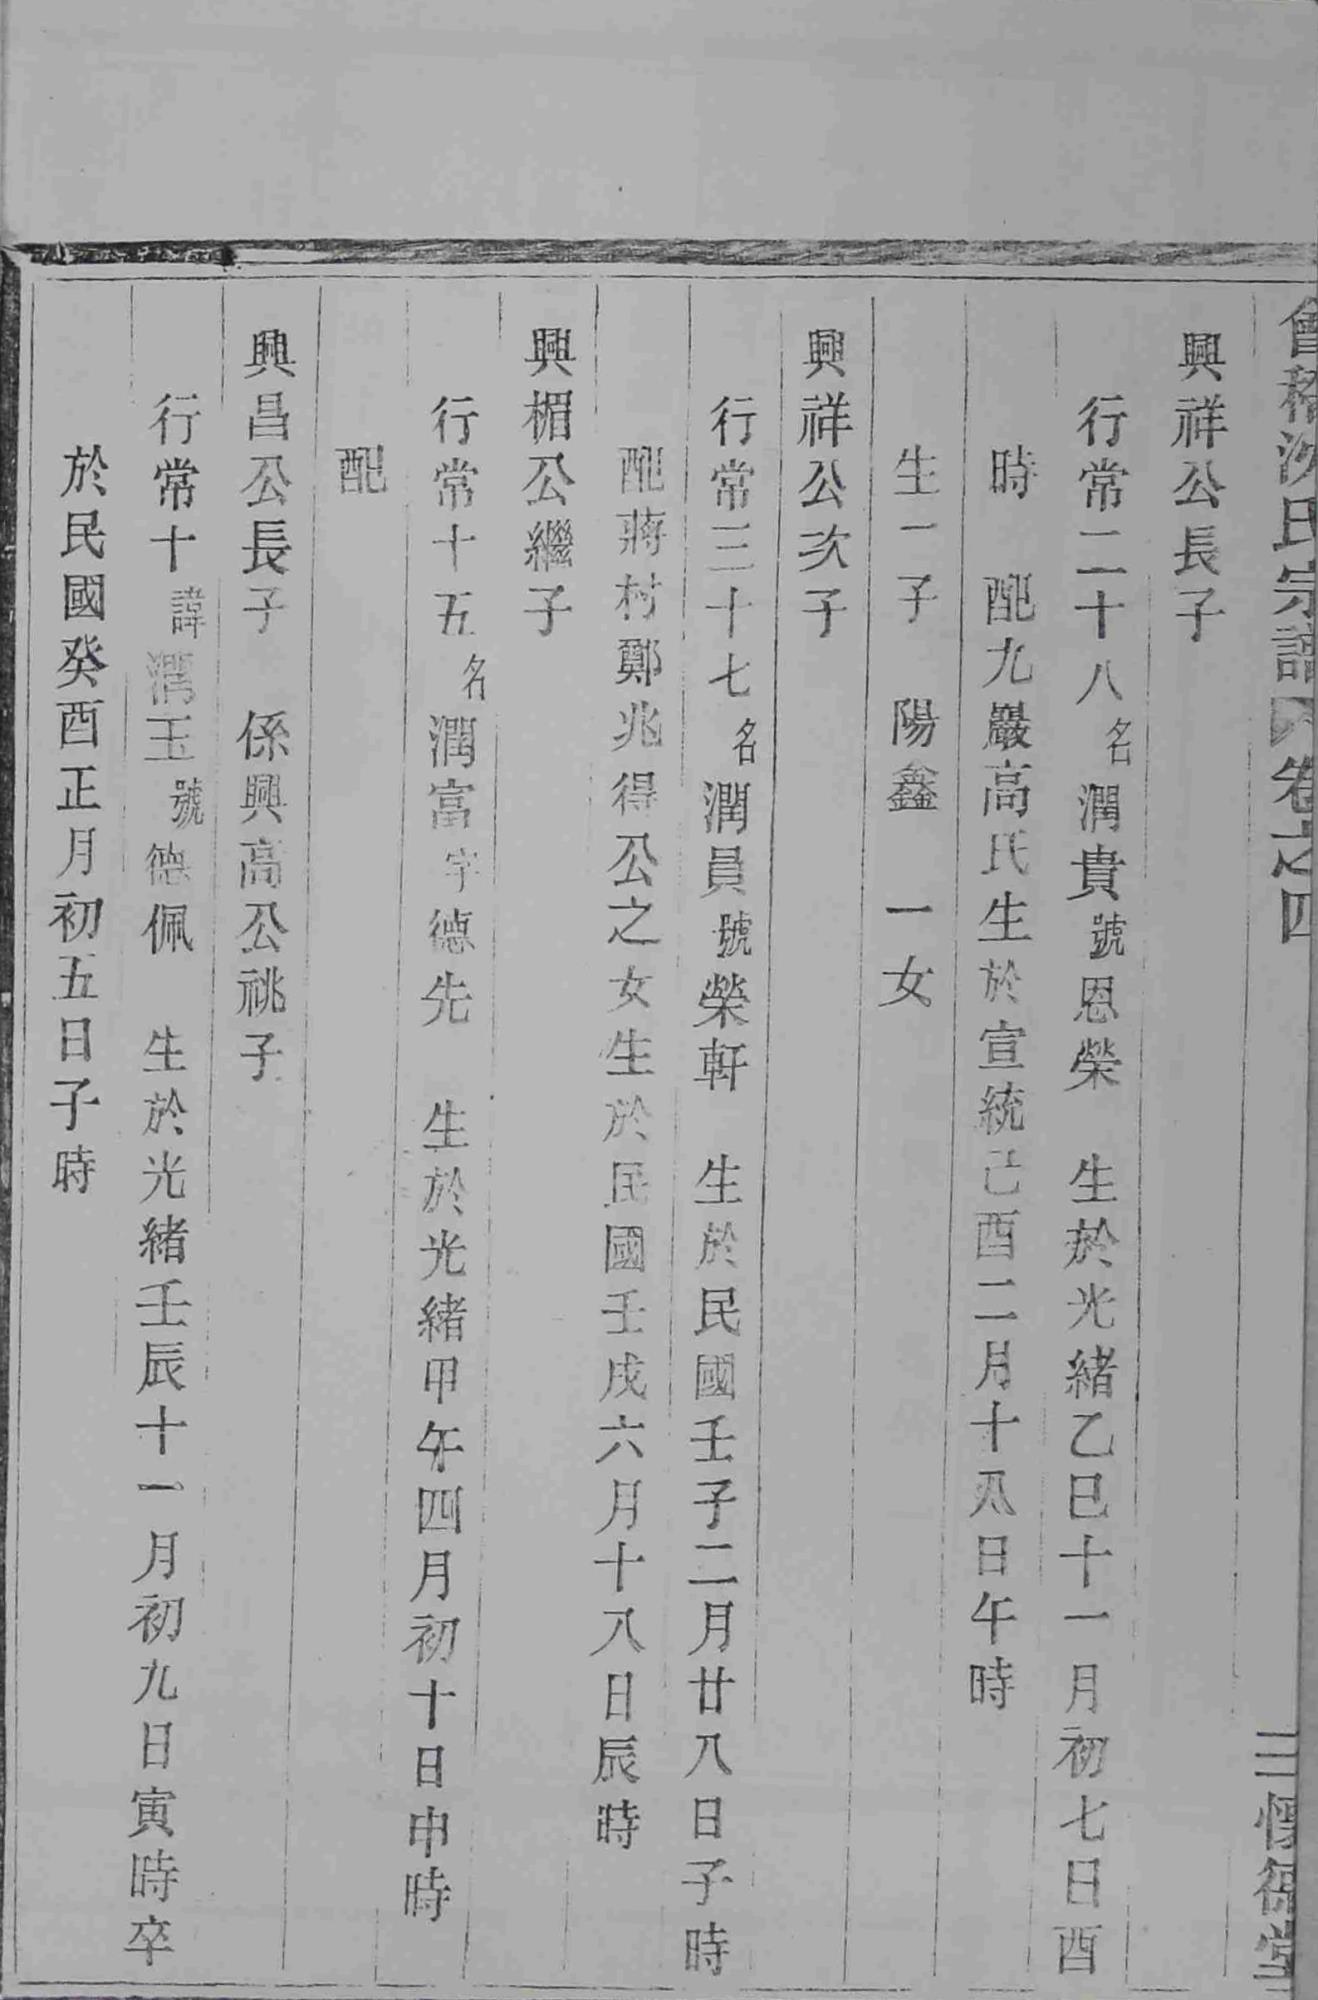 會稽沈氏宗譜 卷之四 三 懷德堂
興祥公長子
行常二十八名潤貴號恩榮 生於光緒乙巳十一月初七日酉
時 配九巖高氏生於宣統己酉二月十八日午時
生一子 陽鑫 一女
興祥公次子
行常三十七名潤員號榮軒 生於民國壬子二月廿八日子時
配蔣村鄭兆得公之女生於民國壬戌六月十八日辰時
興楣公繼子
行常十五名潤富字德先 生於光緒甲午四月初十日申時
配
興昌公長子 係興高公祧子
行常十諱潤玉號德佩 生於光緒壬辰十一月初九日寅時卒
於民國癸酉正月初五日子時